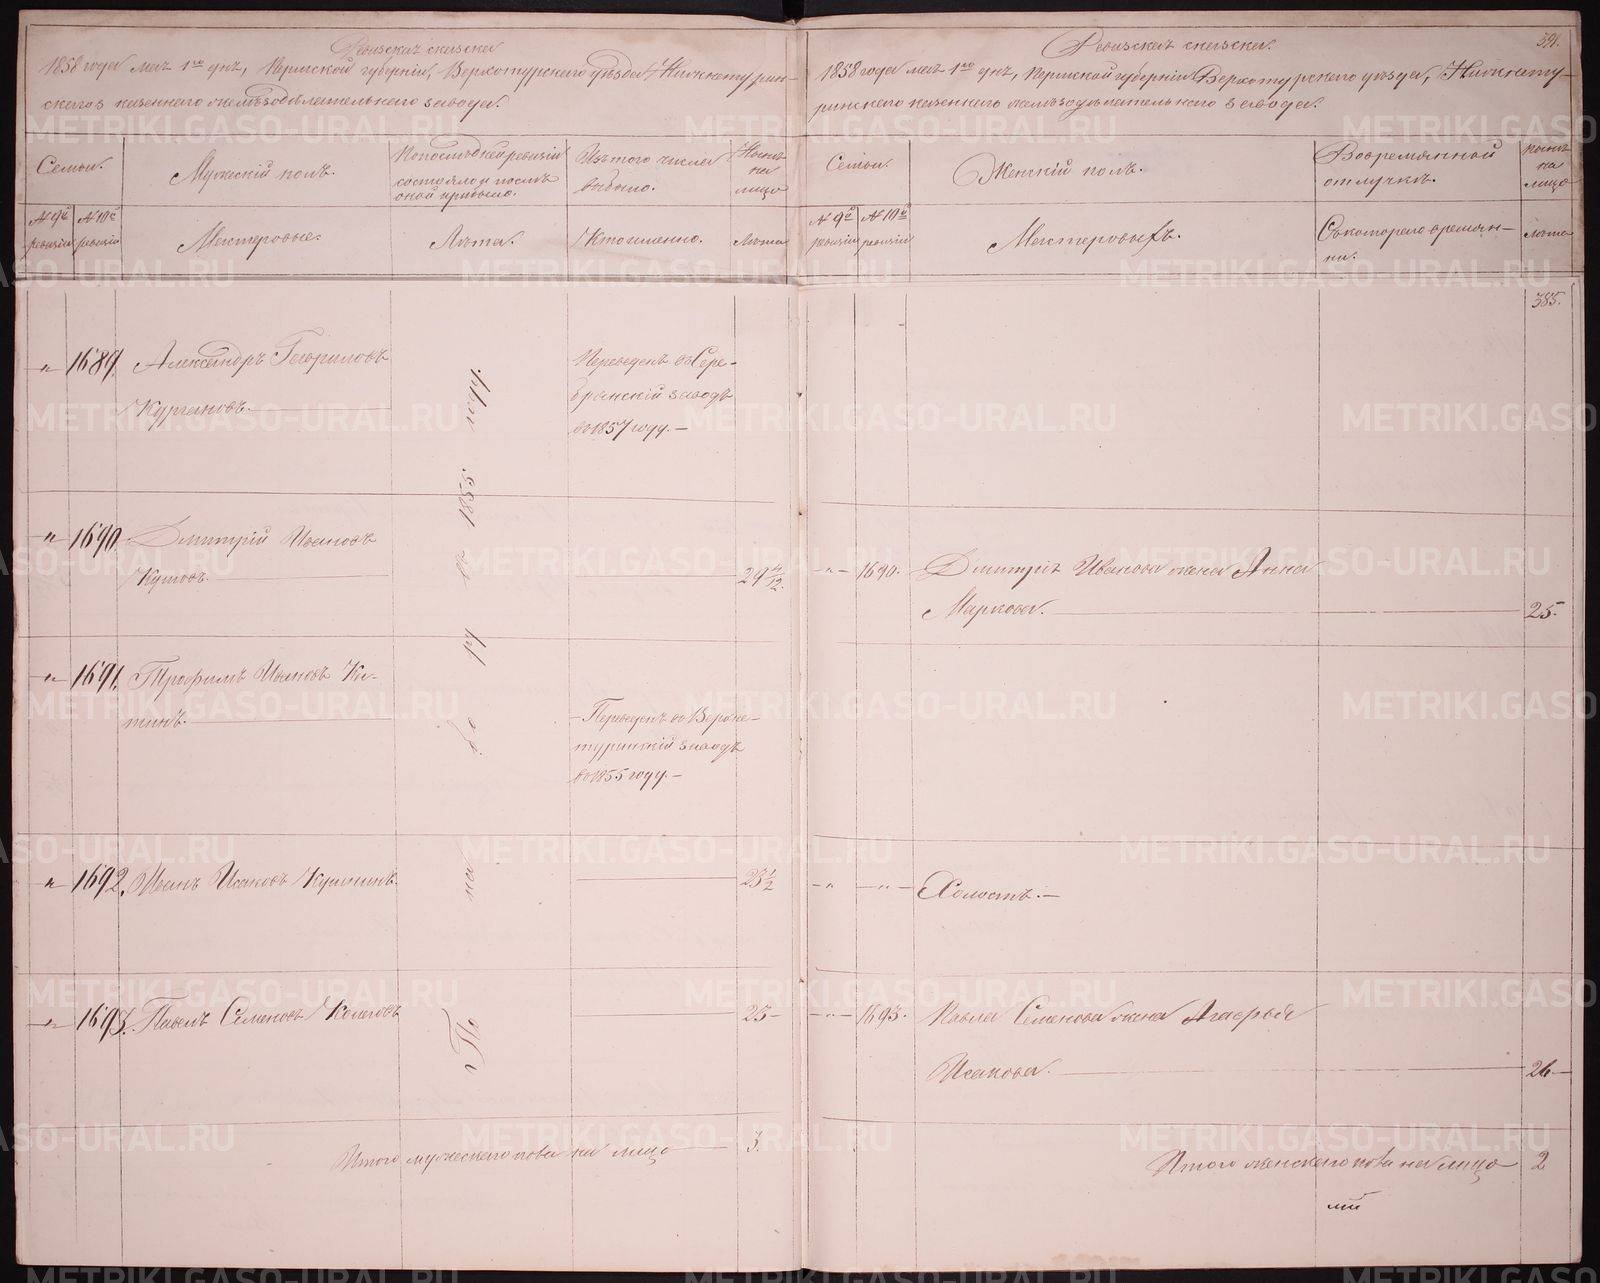 Ревизская сказка
1858 года мая 1го дня, Пермской губернiи, Верхотурского уѣзда, Нижнетурин-
скаго казеннаго желѣзодѣлательнаго завода.
Семьи.
Мужескiй полъ.
По последней ревизiи
состояло и послѣ
оной прибыло.
Изъ того числа
выбыло.
Нынѣ
на
лицо
№ 9й
ревизiи
№ 10й
ревизiи
Мастеровые.
Лѣта.
Кто именно.
Лѣта
„ 1689. Александръ Гавриловъ
Кургановъ.
Переведенъ въ Сере-
брянскiй заводъ
въ 1857 году. —
„ 1690. Дмитрiй Ивановъ
29 4/12.
„ 1691. Трофимъ Ивановъ
Переведенъ въ Верхне-
туринскiй заводъ
въ 1855 году. —
„ 1692. Иванъ Исаковъ
23 1/2
„ 1693. Павелъ Семеновъ
25 —
По на бо ру въ 1855 году.
Итого мужескаго пола на лицо 3.
391.
Ревизская сказка.
1858 года мая 1го дня, Пермской губернiи Верхотурского уѣзда, Нижнету-
ринскаго казеннаго желѣзодѣлательнаго завода.
Семьи
Женскiй полъ.
Во временной
отлучкѣ.
Нынѣ
на
лицо
№ 9й
ревизiи
№ 10й
ревизiи
Мастеровыхъ.
Съ котораго времян-
ни.
Лѣта
385.
— „ — 1690. Дмитрiя Иванова жена Анна
Маркова. 25.
— „ — „ — Холостъ. —
— „ — 1693. Павла Семенова жена Агафья
Исакова. 26 —
Итого женскаго пола на лицо 2